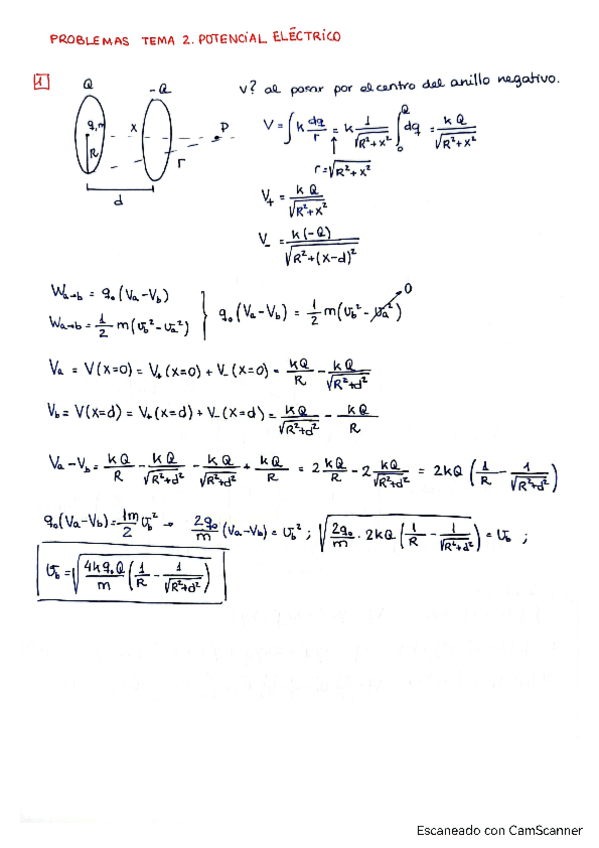 PROBLEMAS TEMA 2. POTENCIAL ELÉCTRICO
1
Q
-Q
v? al pasar por el centro del anillo negativo.
q, m
R
x
P
r
d
V = ∫ k dq/r = k 1/√(R²+x²) ∫₀^Q dq = kQ/√(R²+x²)
r = √(R²+x²)
V₊ = kQ/√(R²+x²)
V₋ = k(-Q)/√(R²+(x-d)²)
Wa→b = q₀(Va-Vb)
Wa→b = 1/2 m(υb²-υa²)
q₀(Va-Vb) = 1/2 m(υb²-υa²)
0
Va = V(x=0) = V₊(x=0) + V₋(x=0) = kQ/R - kQ/√(R²+d²)
Vb = V(x=d) = V₊(x=d) + V₋(x=d) = kQ/√(R²+d²) - kQ/R
Va-Vb = kQ/R - kQ/√(R²+d²) - kQ/√(R²+d²) + kQ/R = 2 kQ/R - 2 kQ/√(R²+d²) = 2kQ (1/R - 1/√(R²+d²))
q₀(Va-Vb) = 1/2 m υb² → 2q₀/m (Va-Vb) = υb² ; √(2q₀/m · 2kQ (1/R - 1/√(R²+d²))) = υb ;
υb = √(4kq₀Q/m (1/R - 1/√(R²+d²)))
Escaneado con CamScanner